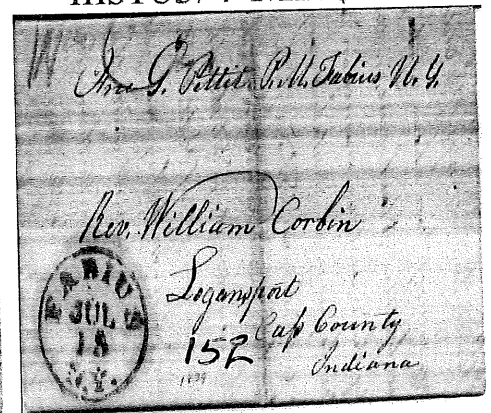 G. Pettit P.M. Fabius N.Y.
Rev. William Corbin
Logansport
Cass County
Indiana
FABIUS
JUL
18
N.Y.
152